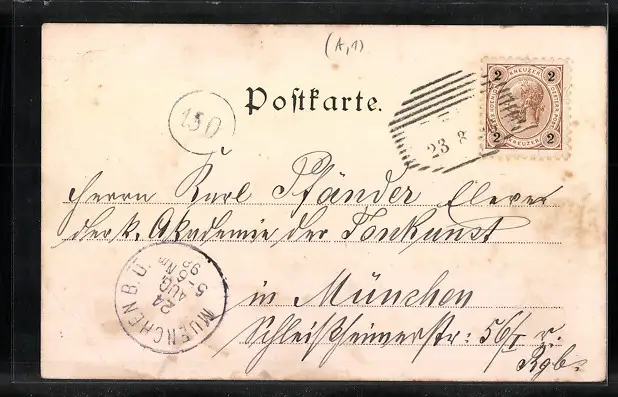 (A,1)
150
Postkarte.
2 KREUZER 2
2 KREUZER 2
23 8
Herrn Karl Pfänder Eleve
der k. Akademie der Tonkunst
in München
Schleißheimerstr: 56/I r.
Rgb.
MUENCHEN B.U.
24
AUG
5-6 Nm
98